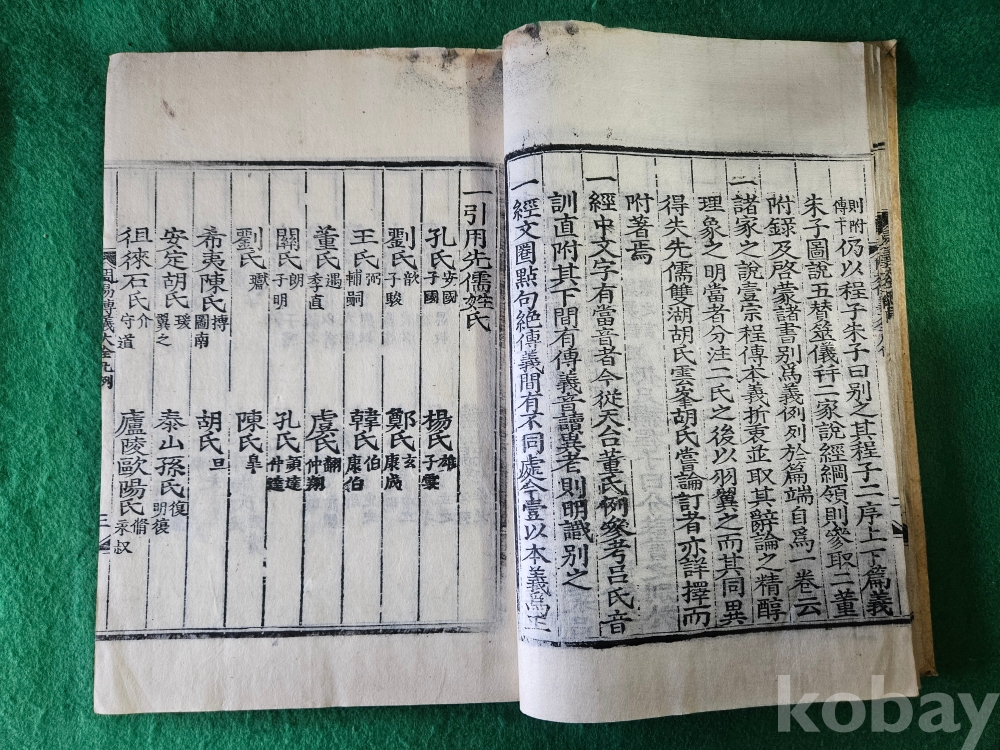 則附傳下仍以程子朱子曰別之其程子二序上下篇義
朱子圖說五贊筮儀幷二家說經綱領則參取二董
附錄及啓蒙諸書別爲義例列於篇端自爲一卷云
一諸家之說壹宗程傳本義折衷並取其辭論之精醇
理象之明當者分注二氏之後以羽翼之而其同異
得失先儒雙湖胡氏雲峯胡氏嘗論訂者亦詳擇而
附著焉
一經中文字有當音者今從天台董氏例參考呂氏音
訓直附其下間有傳義音讀異者則明識別之
一經文圈點句絶傳義間有不同處今壹以本義爲正
一引用先儒姓氏
孔氏安國子國 楊氏雄子雲
劉氏歆子駿 鄭氏玄康成
王氏弼輔嗣 韓氏伯康伯
董氏遇季直 虞氏翻仲翔
關氏朗子明 孔氏穎達仲達
劉氏瓛 陳氏臯
希夷陳氏摶圖南 胡氏旦
安定胡氏瑗翼之 泰山孫氏復明復
徂徠石氏介守道 廬陵歐陽氏脩永叔
周易傳義大全凡例 三
kobay